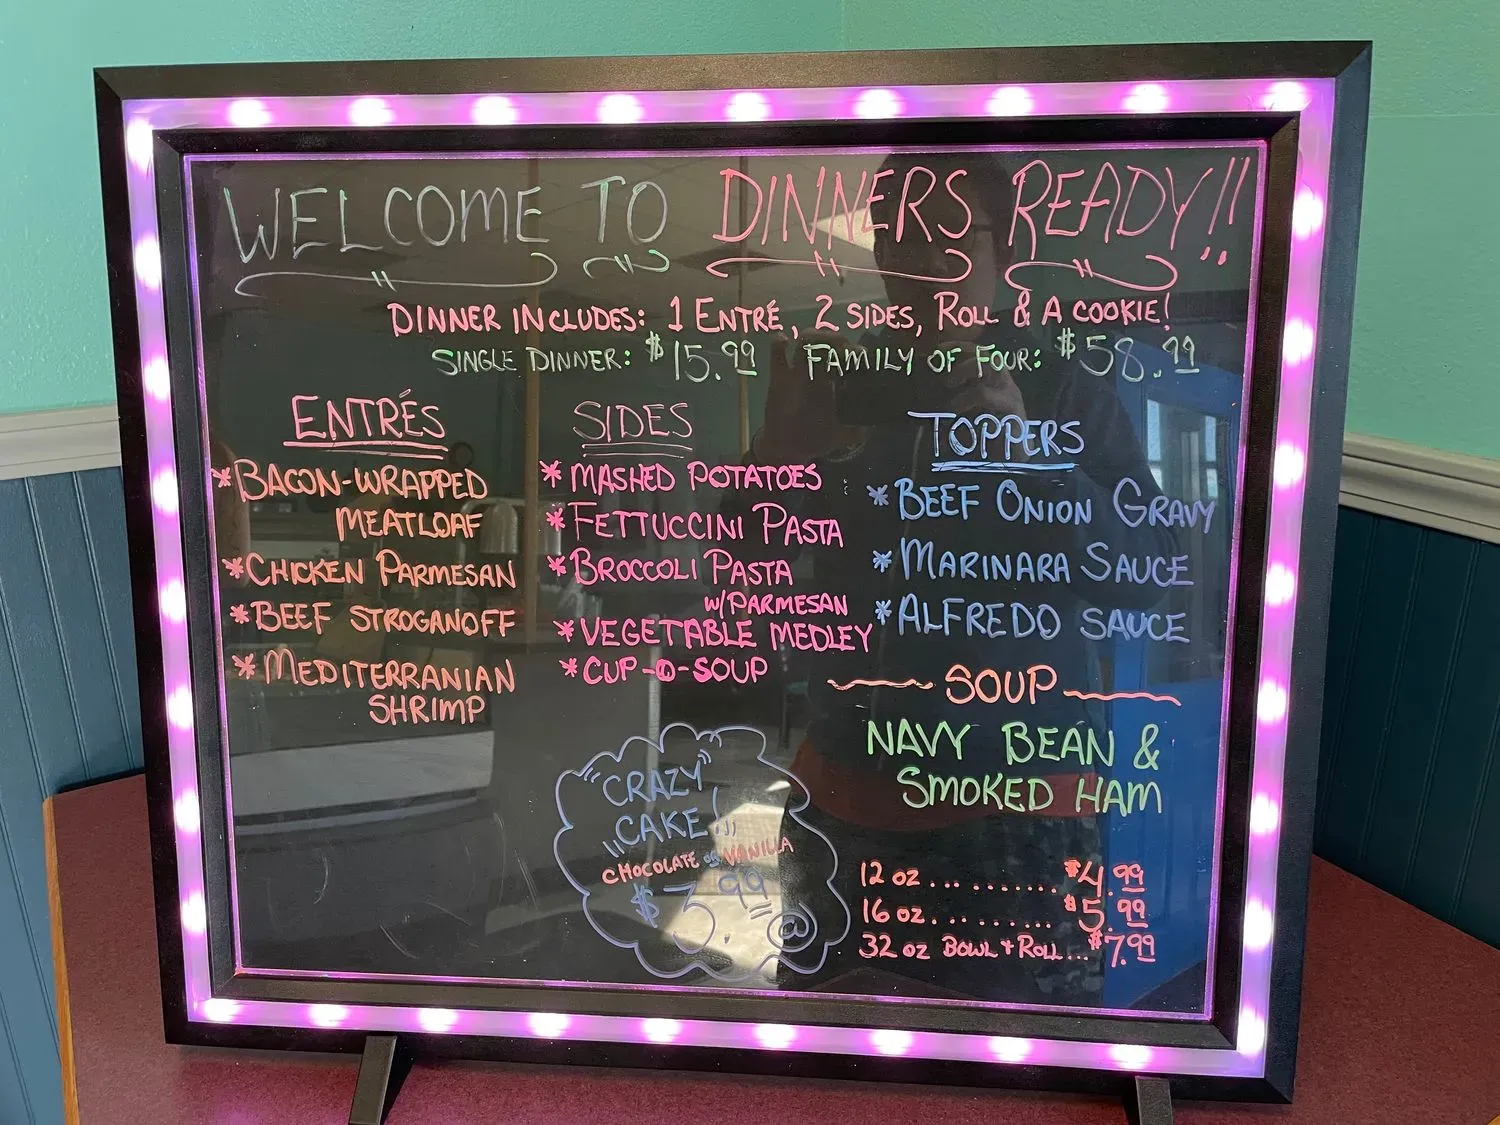 WELCOME TO DINNERS READY!!
DINNER INCLUDES: 1 ENTRÉ, 2 SIDES, ROLL & A COOKIE!
SINGLE DINNER: $15.99 FAMILY OF FOUR: $58.99
ENTRÉS
*BACON-WRAPPED
MEATLOAF
*CHICKEN PARMESAN
*BEEF STROGANOFF
*MEDITERRANIAN
SHRIMP
SIDES
*MASHED POTATOES
*FETTUCCINI PASTA
*BROCCOLI PASTA
W/PARMESAN
*VEGETABLE MEDLEY
*CUP-O-SOUP
TOPPERS
*BEEF ONION GRAVY
*MARINARA SAUCE
*ALFREDO SAUCE
SOUP
NAVY BEAN &
SMOKED HAM
12 OZ............ $4.99
16 OZ........... $5.99
32 OZ BOWL + ROLL... $7.99
CRAZY
CAKE!
CHOCOLATE OR VANILLA
$3.99 @